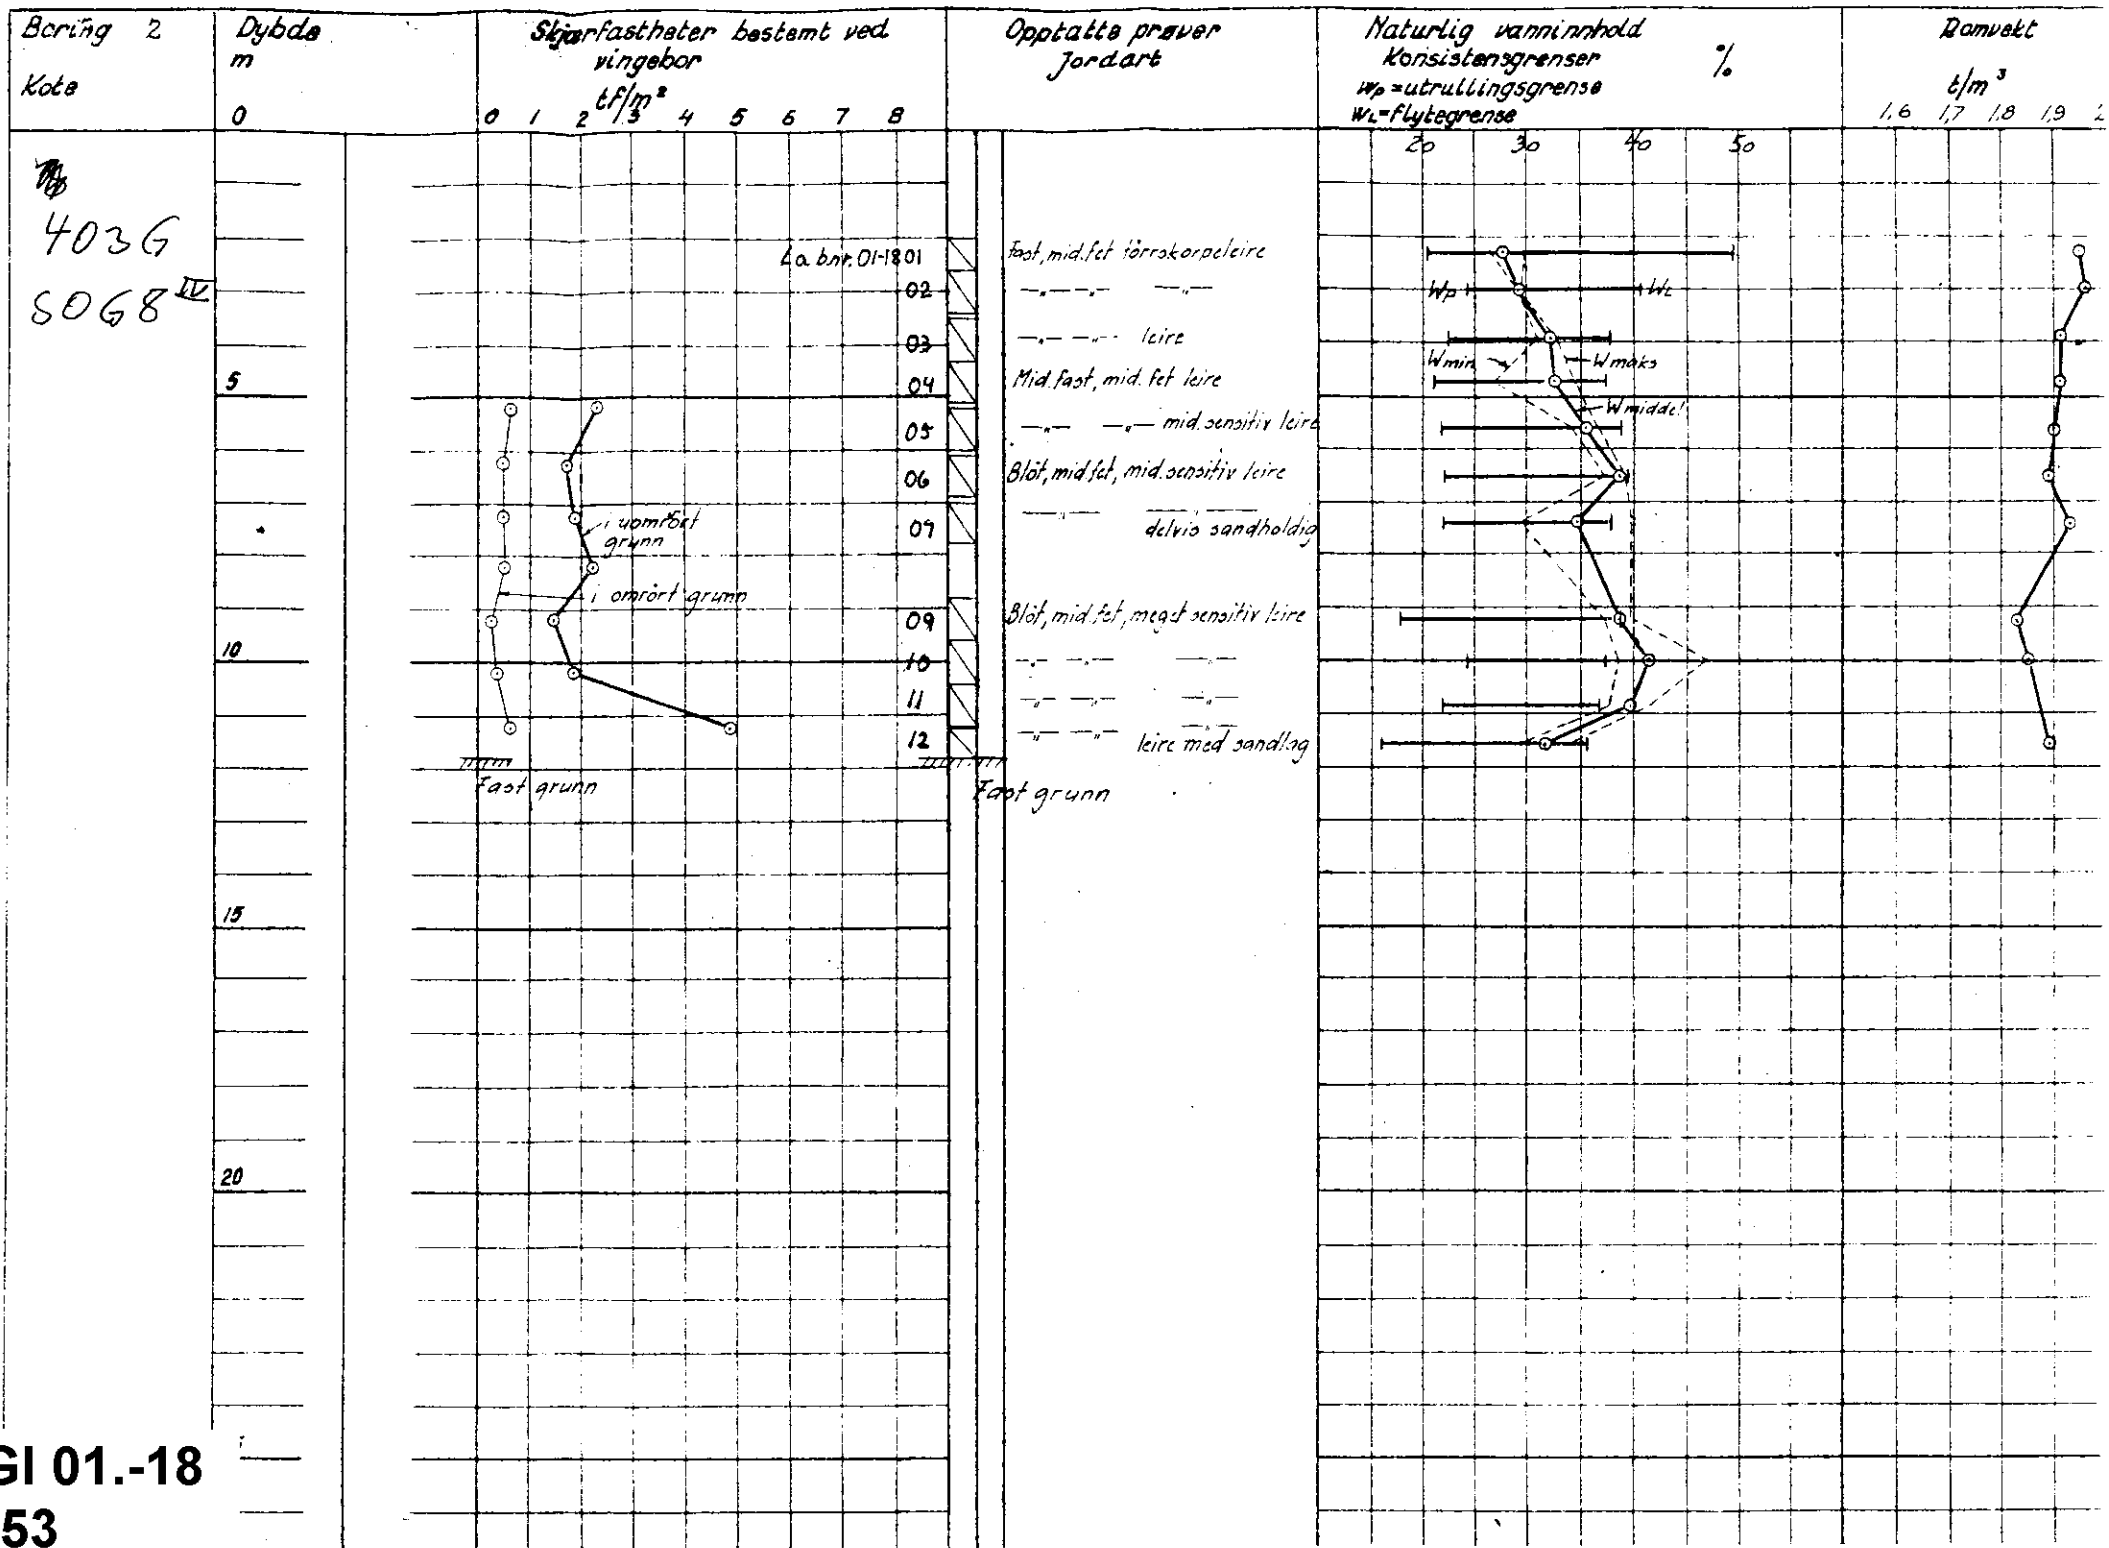 Boring 2
Kote
Dybde
m
0
Skjærfastheter bestemt ved
vingebor
tf/m²
0 1 2 3 4 5 6 7 8
Opptatte prøver
Jordart
Naturlig vanninnhold
Konsistensgrenser %
Wp = utrullingsgrense
WL = flytegrense
20 30 40 50
Romvekt
t/m³
1,6 1,7 1,8 1,9
403G
SOG8 IV
5
10
15
20
Lab.nr. 01-18 01
02
03
04
05
06
07
09
10
11
12
i uomrört
grunn
i omrört grunn
Fast grunn
Fast, mid. fet törrskorpeleire
—„— —„— —„—
—„— —„— leire
Mid. fast, mid. fet leire
—„— —„— mid. sensitiv leire
Blöt, mid. fet, mid. sensitiv leire
—„— —„—
delvis sandholdig
Blöt, mid. fet, meget sensitiv leire
—„— —„— —„—
—„— —„— —„—
—„— —„— —„—
leire med sandlag
Fast grunn
Wp WL
Wmin Wmaks
Wmiddel
GI 01.-18
53